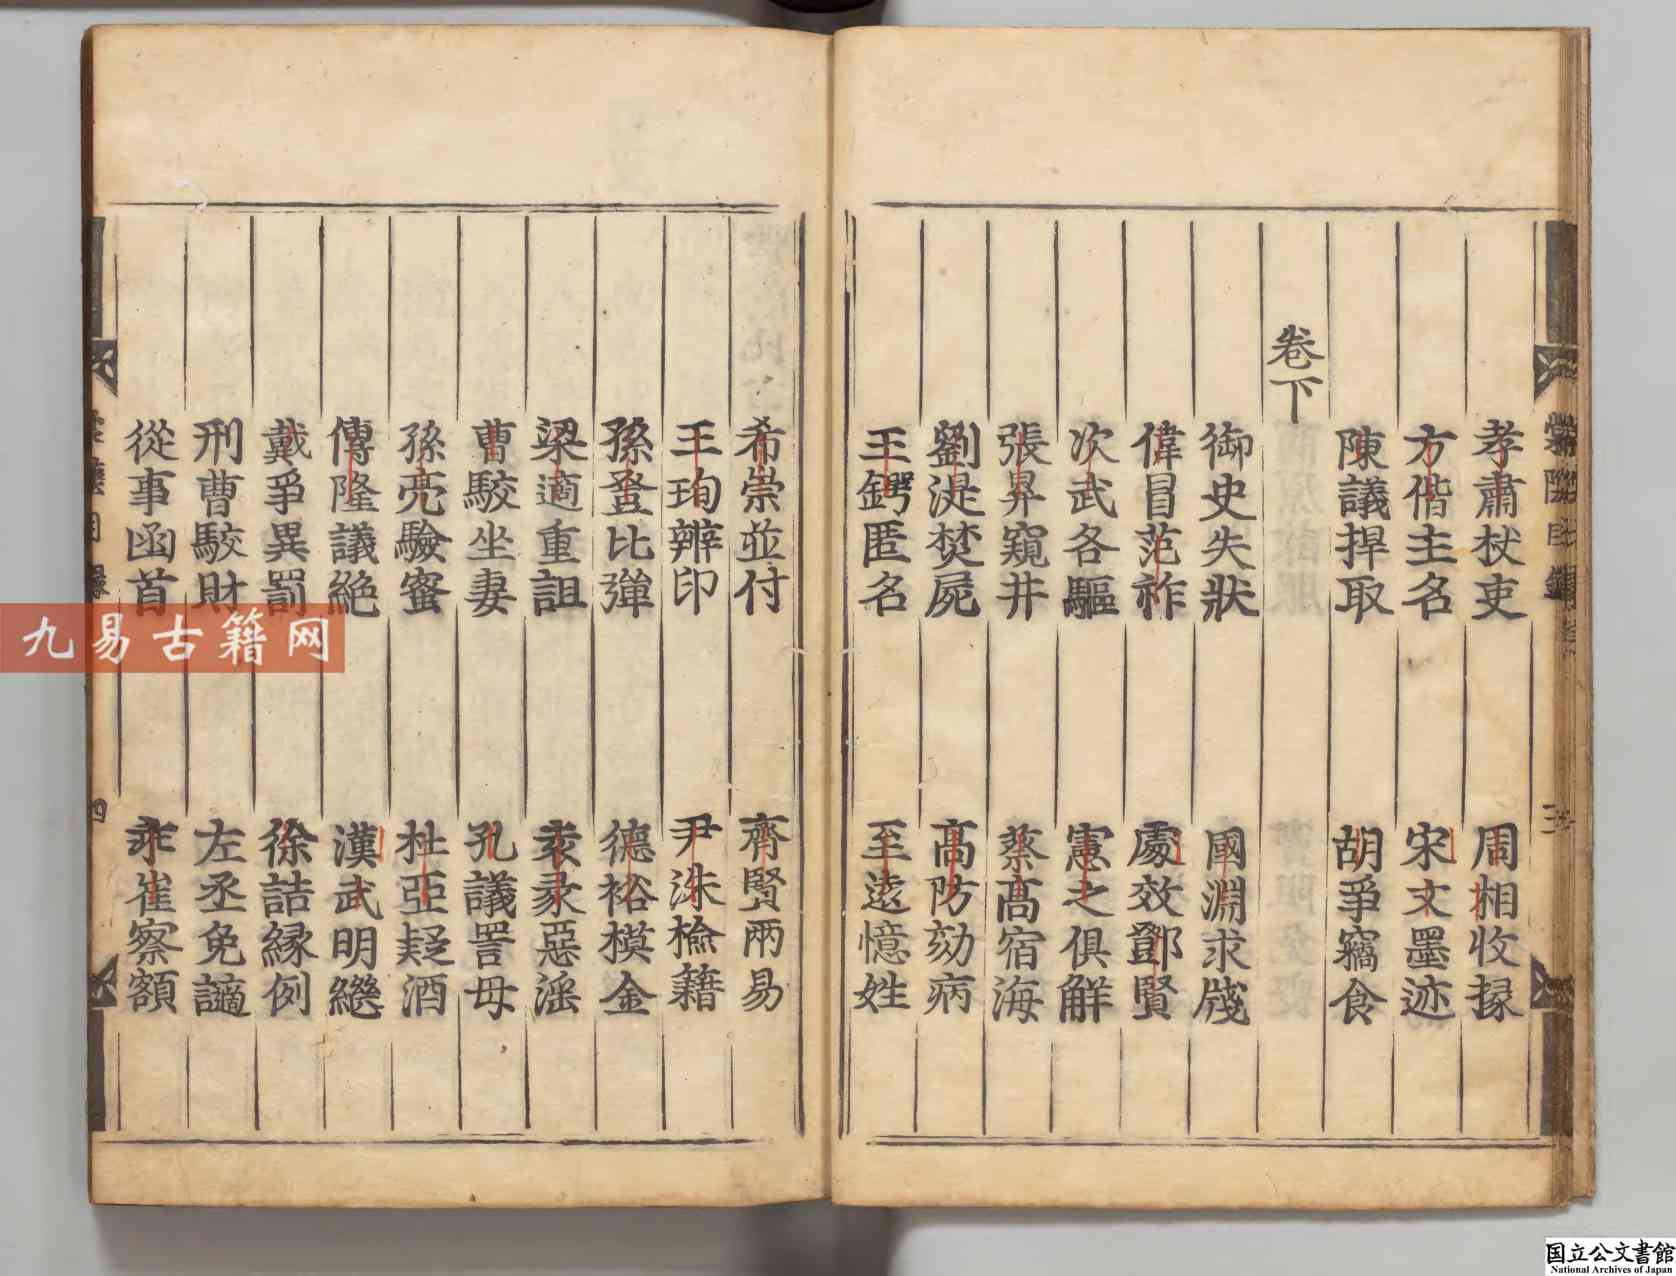 孝肅杖吏 周相收掾
方偕主名 宋文墨迹
陳議捍取 胡爭竊食
卷下
御史失狀 國淵求牋
偉冒范祚 處效鄧賢
次武各驅 憲之俱解
張昇窺井 蔡高宿海
劉湜焚屍 高防劾病
王鍔匿名 至遠憶姓
希崇並付 齊賢兩易
王珣辨印 尹洙檢籍
孫登比彈 德裕模金
梁適重詛 彖惡淫
曹駮坐妻 孔議詈母
孫亮驗蜜 杜亞疑酒
傅隆議絕 漢武明繼
戴爭異罰 徐詰緣例
刑曹駮財 左丞免謫
從事函首 乖崖察額
三
四
九易古籍网
国立公文書館
National Archives of Japan